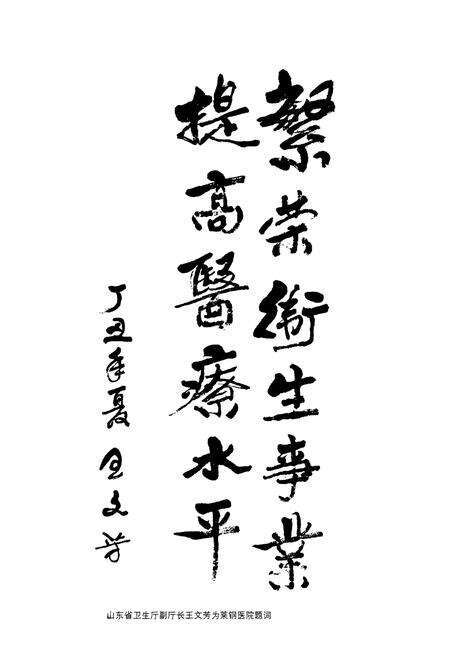 繁荣衛生事業
提高醫療水平
丁丑年夏 王文芳
山东省卫生厅副厅长王文芳为莱钢医院题词